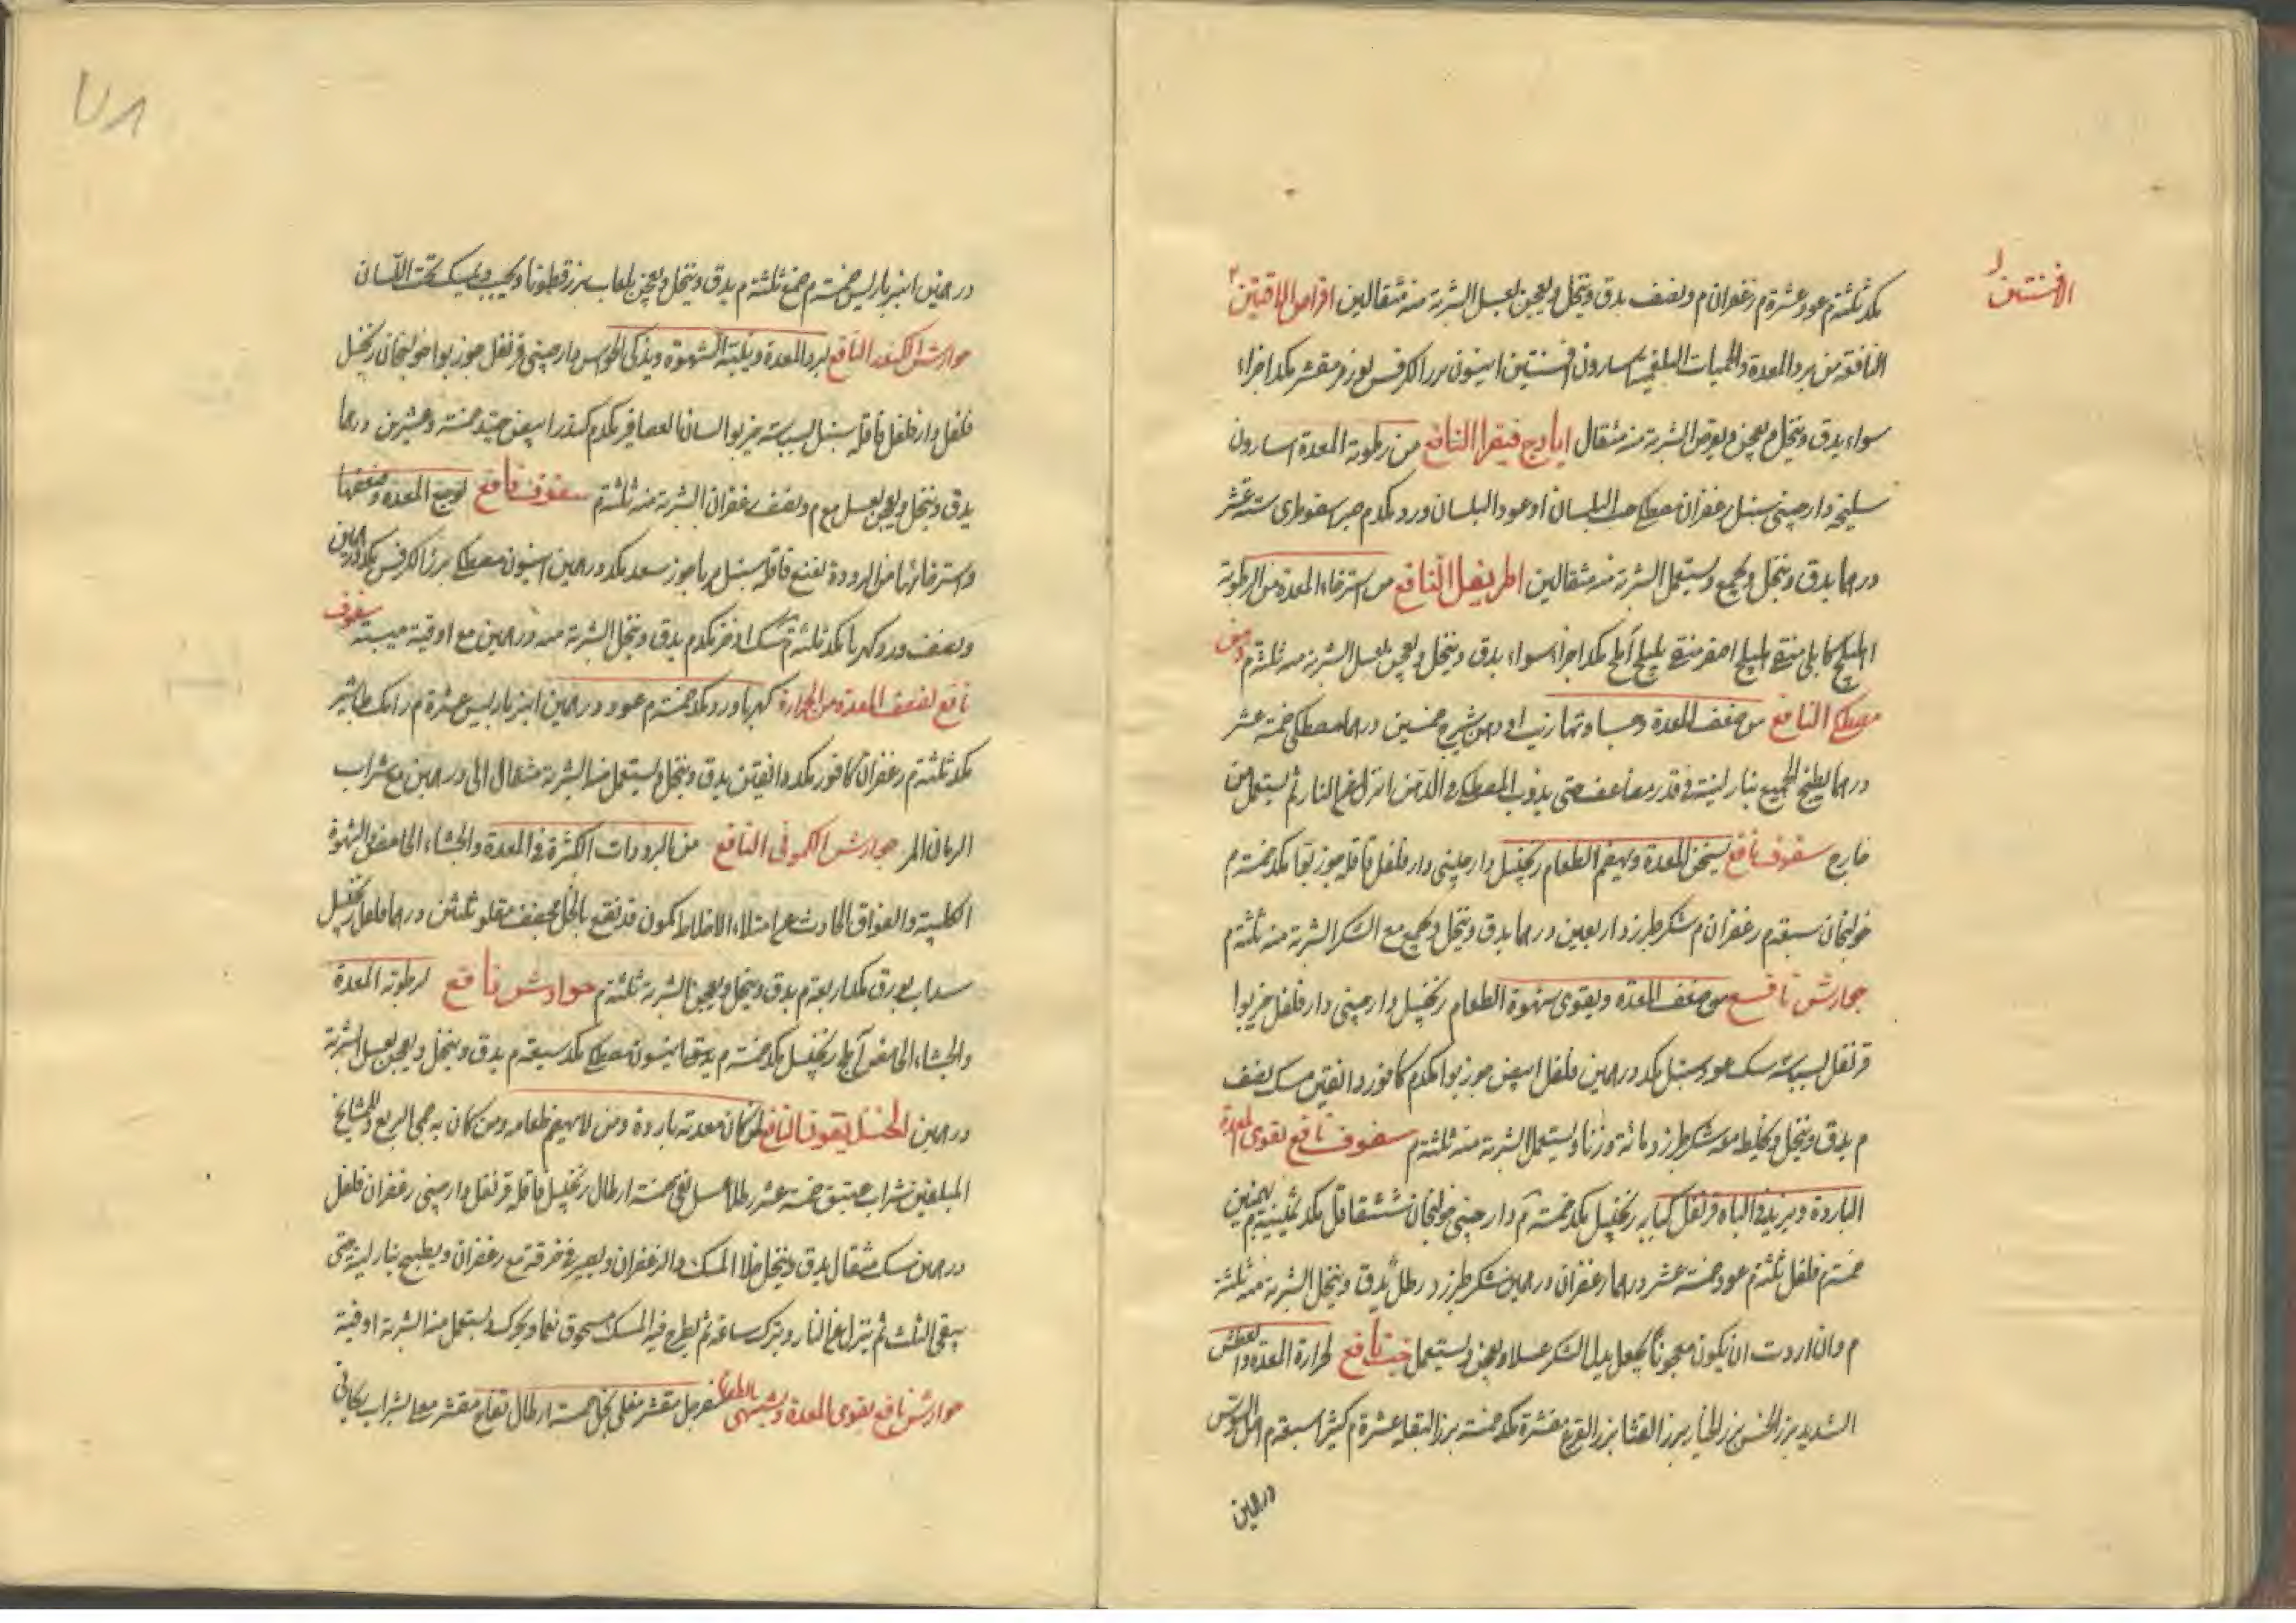 الافسنتين
مكد ثلثة م عود عشرة م زعفران م ونصف يدق وينخل ويعجن بعسل الشربة منه مثقالين اقراص الافسنتين
النافعة من برد المعدة والحميات البلغمية اسارون افسنتين انيسون بزر الكرفس لوز مر مقشر مكد اجزاء
سواء يدق وينخل ويعجن ويقرص الشربة منه مثقال ايارج فيقرا النافع من رطوبة المعدة اسارون
سليخة دارچينى سنبل زعفران مصطكى حب البلسان او عود البلسان ورد مكد م صبر سقوطرى ستة عشر
درهما يدق وينخل ويجمع ويستعمل الشربة منه مثقالين اطريفل النافع من استرخاء المعدة من الرطوبة
اهليلج كابلى منقى هليلج اصفر منقى بليلج آملج مكد اجزاء سواء يدق وينخل ويعجن بعسل الشربة منه ثلثة م دهن
مصطكى النافع من ضعف المعدة وحساوتها زيت او دهن شيرج خمسين درهما مصطكى خمسة عشر
درهما يطبخ الجميع بنار لينة فى قدر مضاعف حتى يذوب المصطكى فى الدهن انزل عن النار ثم يستعمل من
خارج سفوف نافع يسخن المعدة ويهضم الطعام زنجبيل دارچينى دار فلفل قاقله جوز بوا مكد خمسة م
خولنجان سبعة م زعفران م سكر طبرزد اربعين درهما يدق وينخل ويجمع مع السكر الشربة منه ثلثة م
جوارش نافع من ضعف المعدة ويقوى شهوة الطعام زنجبيل دارچينى دار فلفل خير بوا
قرنفل بسباسه سك عود سنبل مكد درهمين فلفل ابيض جوز بوا مكد م كافور دانقين مسك نصف
م يدق وينخل ويخلط معه سكر طبرزد مائة وزنا ويستعمل الشربة منه ثلثة م سفوف نافع لقوى المعدة
الباردة ويزيد فى الباه قرنفل كبابه زنجبيل مكد خمسة م دارچينى خولنجان شقاقل مكد ثمنية م بهمنين
خمسة م فلفل ثلثة م عود خمسة عشر درهما زعفران درهمين سكر طبرزد رطل يدق وينخل الشربة منه ثلثة
م وان اردت ان يكون معجونا يجعل بدل السكر عسلا ويعجن ويستعمل حب نافع لحرارة المعدة والعطش
الشديد بزر الخس بزر الخيار بزر القثا بزر القرع مقشرة مكد خمسة بزر البقله عشرة م كثيرا سبعة م اصل السوس
درهمين
٧٨
درهمين انبرباريس خمسة م صمغ ثلثة م يدق وينخل ويعجن بلعاب بزر قطونا ويحبب ويمسك تحت اللسان
جوارش الكندر النافع لبرد المعدة وينبه الشهوة ويذكى الحواس دارچينى قرنفل جوز بوا خولنجان زنجبيل
فلفل دار فلفل قاقله سنبل بسباسه خير بوا لسان العصافير مكد م كندر ابيض جيد خمسة وعشرين درهما
يدق وينخل ويعجن بعسل مع م ونصف زعفران الشربة منه ثلثة م سفوف نافع لوجع المعدة وضعفها
واسترخائها من البرودة نعنع قاقله سنبل سعد مكد درهمين انيسون مصطكى بزر الكرفس مكد درهمين
ونصف ورد كهربا مكد ثلثة م سك اذخر مكد م يدق وينخل الشربة منه درهمين مع اوقية ميبة سفوف
نافع لضعف المعدة من الحرارة كهربا ورد مكد خمسة م عود درهمين انبرباريس عشرة م رامك طباشير
مكد ثلثة م زعفران كافور مكد دانقين يدق وينخل ويستعمل منه الشربة مثقال الى درهمين مع شراب
الرمان المر جوارش الكمونى النافع من البرودات الكثيرة فى المعدة والجشاء الحامض والشهوة
الكلبية والفواق الحادث عن امتلاء الاخلاط كمون قد نقع بالخل مجفف مقلو ثلثين درهما فلفل زنجبيل
سداب بورق مكد اربعة م يدق وينخل ويعجن الشربة ثلثة م جوارش نافع لرطوبة المعدة
والجشاء الحامض آملج زنجبيل مكد خمسة م انيسون مصطكى مكد سبعة م يدق وينخل ويعجن بعسل الشربة
درهمين النافع لمن كان معدته باردة ومن لا يهضم طعامه ومن كان به حمى الربع وللمشايخ
المبلغمين شراب عتيق خمسة عشر رطلا عسل نقى خمسة ارطال زنجبيل قاقله قرنفل دارچينى زعفران فلفل
درهمين مسك مثقال يدق وينخل خلا المسك والزعفران ويصير فى خرقة مع زعفران ويطبخ بنار لينة حتى
يبقى الثلث ثم ينزل عن النار ويترك ساعة ثم يطرح فيه المسك مسحوق نعما ويحرك ويستعمل منه الشربة اوقية
جوارش نافع يقوى المعدة ويشهى الطعام سفرجل مقشر مغلى بخل خمسة ارطال تفاح مقشر مغلى بشراب ريحانى